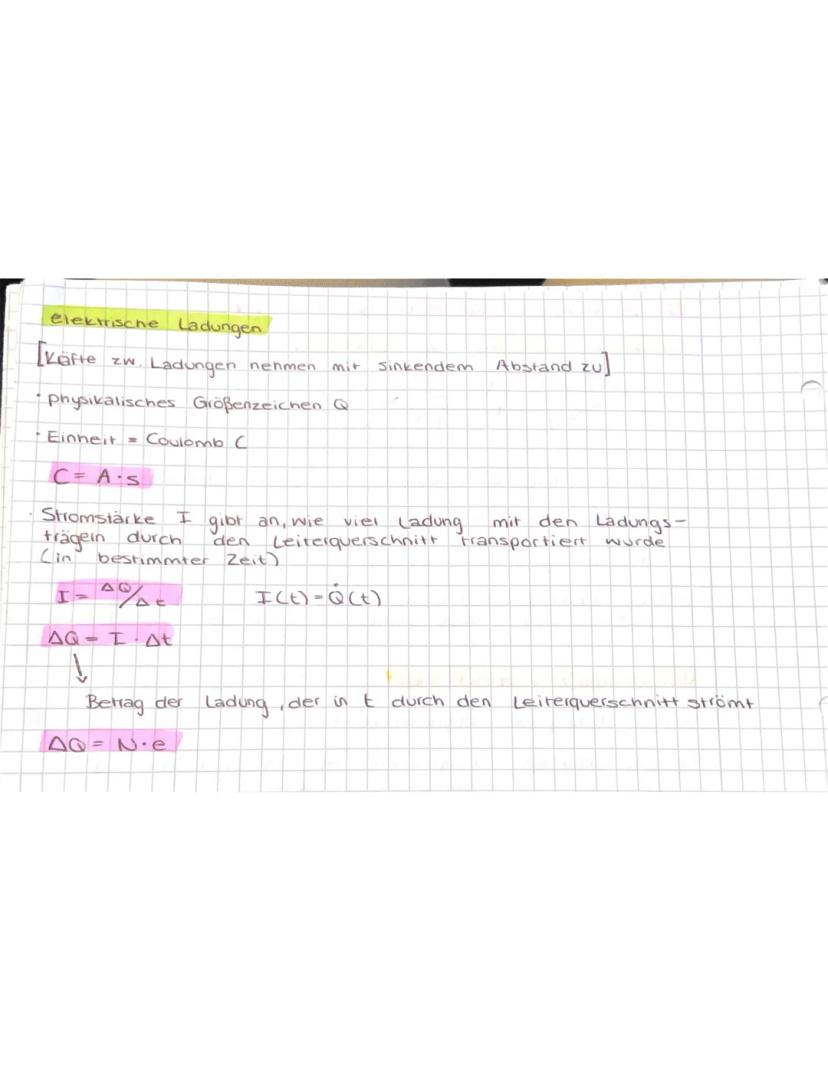 elektrische Ladungen
[Käfte zw. Ladungen nehmen mit sinkendem Abstand zu]
· physikalisches Größenzeichen Q
· Einheit = Coulomb C
C = A · s
· Stromstärke I gibt an, wie viel Ladung mit den Ladungs-
trägern durch den Leiterquerschnitt transportiert wurde
(in bestimmter Zeit)
I = ΔQ/Δt I(t) = Q̇(t)
ΔQ = I · Δt
↓
Betrag der Ladung, der in t durch den Leiterquerschnitt strömt
ΔQ = N · e